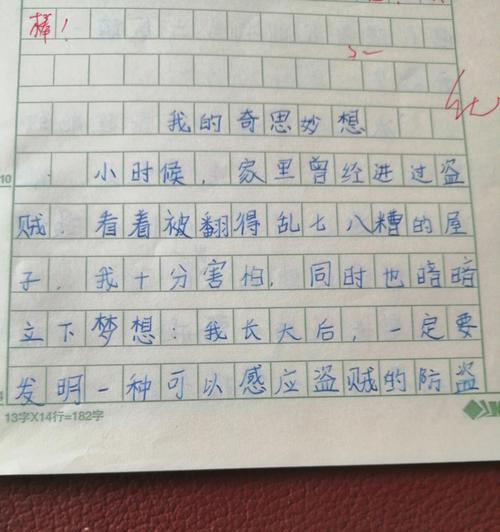 棒！
我的奇思妙想
小时候，家里曾经进过盗
贼。看着被翻得乱七八糟的屋
子，我十分害怕，同时也暗暗
立下梦想：我长大后，一定要
发明一种可以感应盗贼的防盗
13字X14行=182字